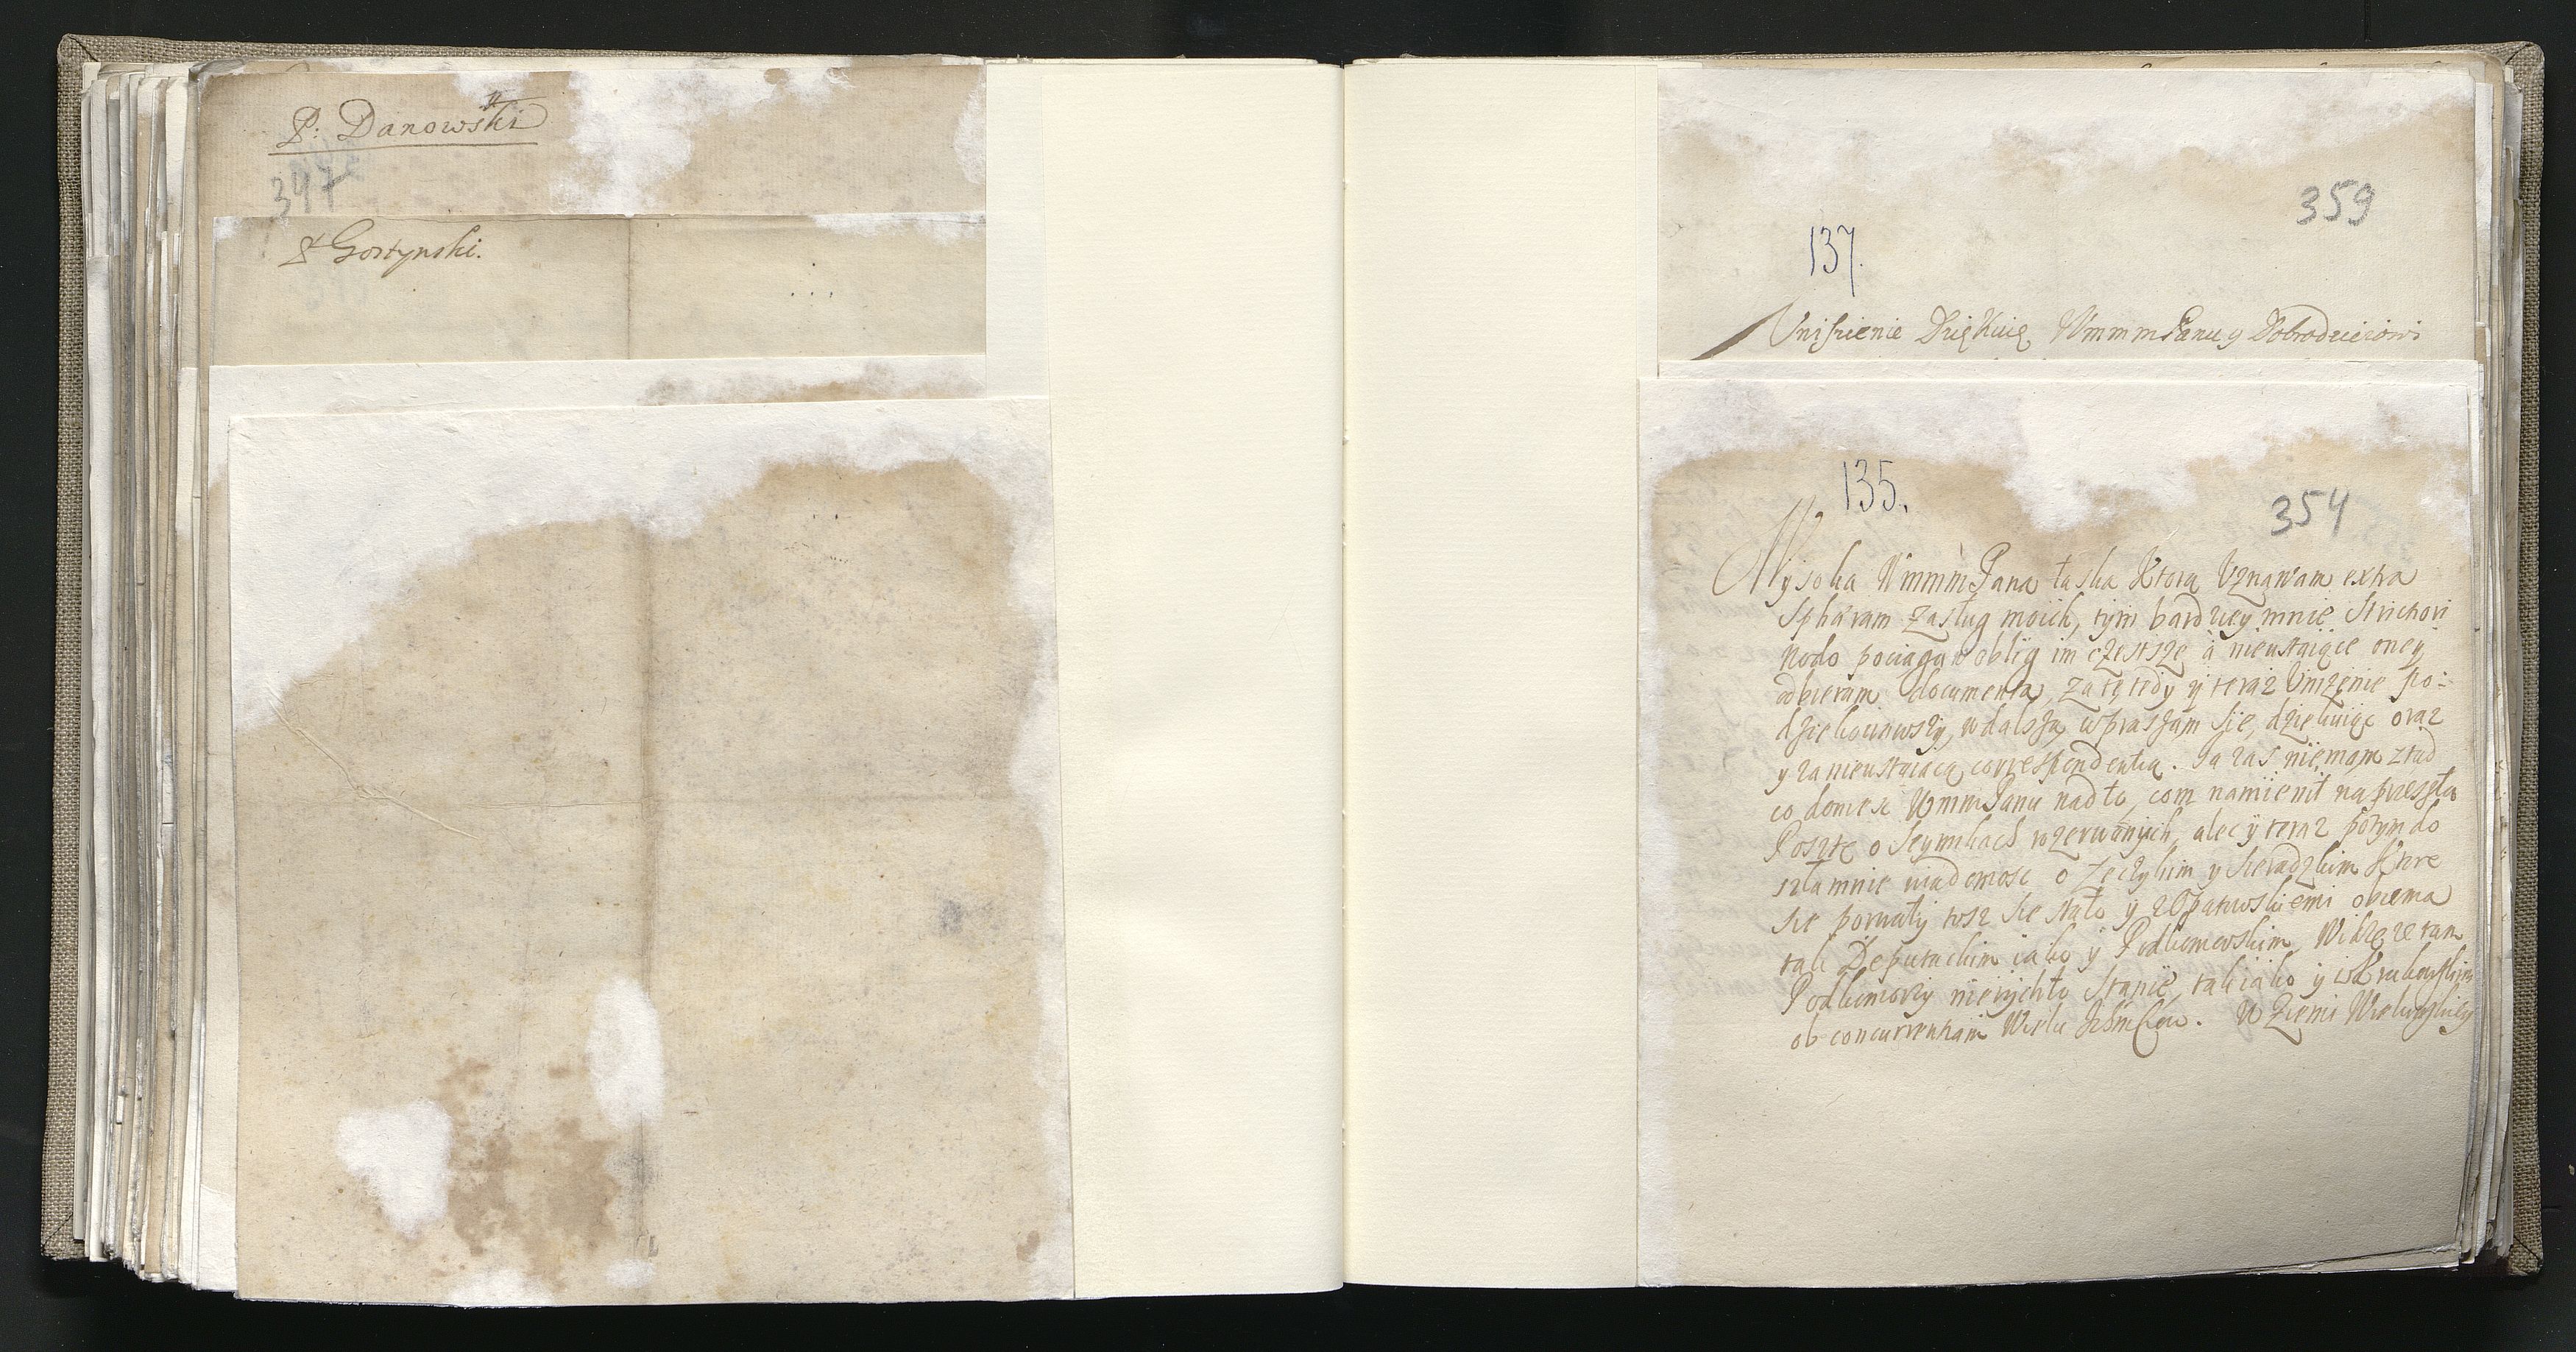 P: Danowski
347
P Gostynski.
359
137.
Uniżenie Dziękuię Wmmm Panu y Dobrodzieiowi
135.
354
Wysoka Wmmm Pana łaska Ktorą Uznawam extra
Sphæram zasług moich, tym bardziey mnie Strictiori
Nodo pociąga w oblig im częstsze à nieustaiące oney
odbieram documenta, za tę tedy ÿ teraz Unizenie po:
dziekowawszy, w dalszą wpraszam Się, dziekuiąc oraz
y za nieustaiącą correspondentią. Ja zas nie mam ztąd
co donieść Wmm Panu nad to, com namienił na przeszłą
Posztę o Seymikach rozerwanych, alec ÿ teraz potym do
szła mnie wiadomosc o Łęczykim y Sieradzkim Ktore
sie porwały tosz sie stało ÿ z Opatowskiemi obiema
tak Deputackim iako ÿ Podkomorskim, Widzę ze tam
Podkomorzy nierychło Stanie, tak iako ÿ w Krakowskim
ob concurrentiam Wielu . W Ziemi Wielunskiey